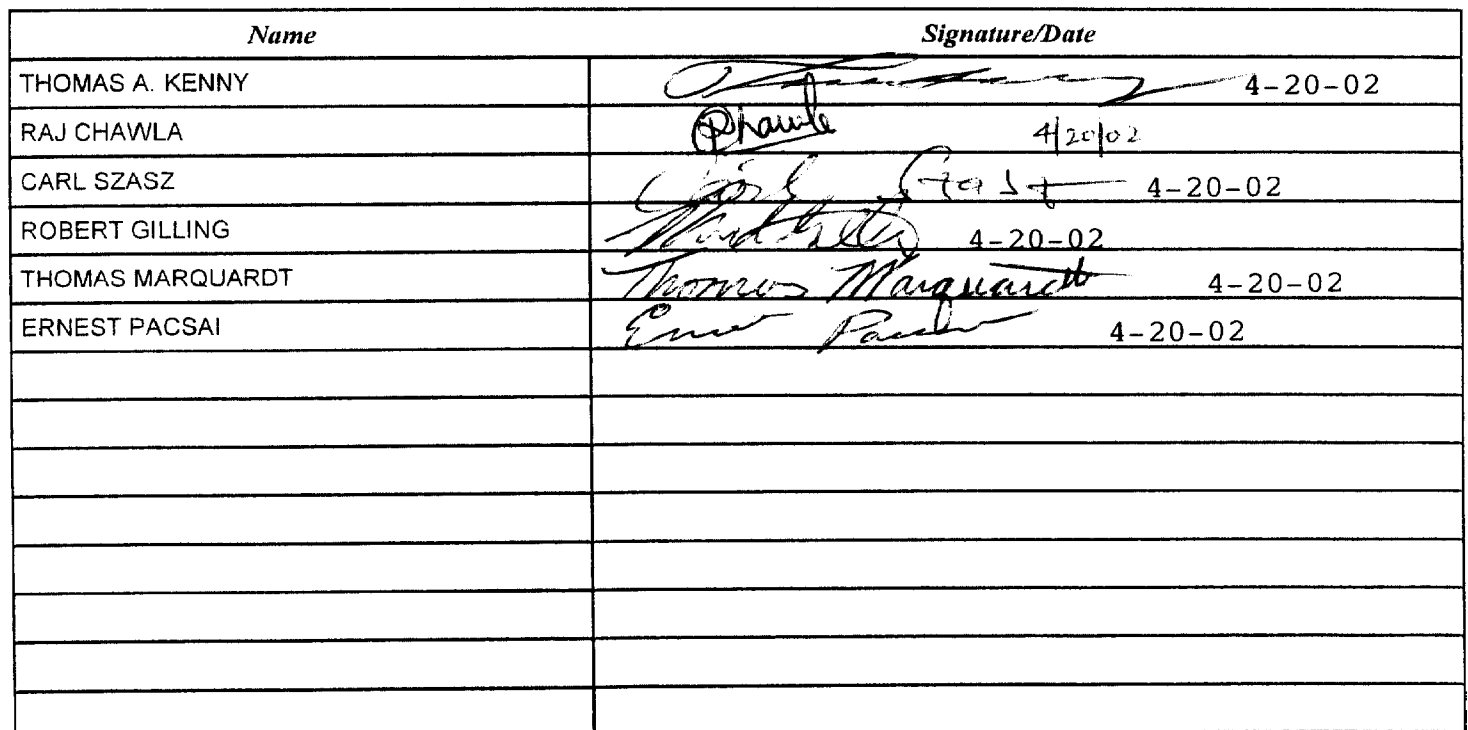 Name Signature/Date
THOMAS A. KENNY 4-20-02
RAJ CHAWLA Rhawla 4/20/02
CARL SZASZ Carl 4-20-02
ROBERT GILLING 4-20-02
THOMAS MARQUARDT Thomas Marquardt 4-20-02
ERNEST PACSAI 4-20-02